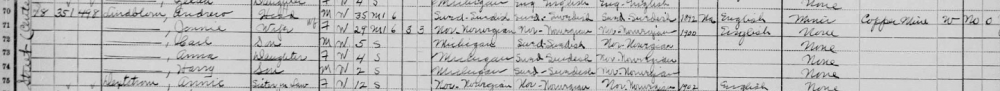 Daughter F W 4 S Michigan Eng. English Eng. English None
70 78 351 498 Lindblom, Andrew Head M W 35 M1 6 Swed-Swedish Swed-Swedish Swed-Swedish 1892 Na English Miner Copper Mine W No 0
71 ———, Jennie Wife F W 29 M1 6 3 3 Nor-Norwegian Nor-Norwegian Nor-Norwegian 1900 English None
72 ———, Carl Son M W 5 S Michigan Swed-Swedish Nor-Norwegian None
73 ———, Anna Daughter F W 4 S Michigan Swed-Swedish Nor-Norwegian None
74 ———, Harry Son M W 2 S Michigan Swed-Swedish Nor-Norwegian None
75 Annie Sister in law F W 12 S Nor-Norwegian Nor-Norwegian Nor-Norwegian 1902 English None